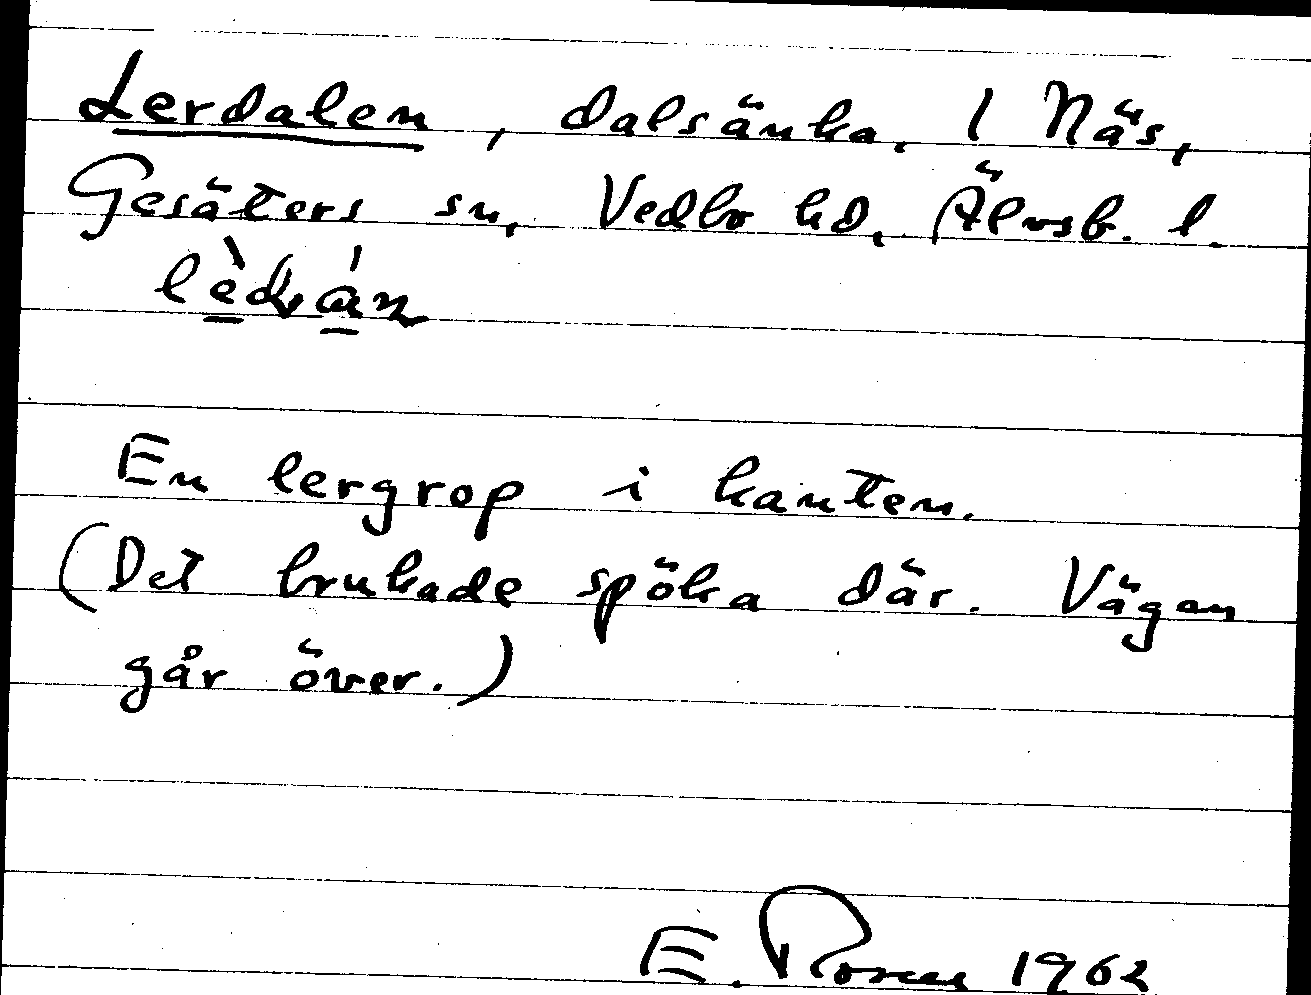 Lerdalen, dalsänka. I Näs,
Gesäters sn, Vedbo hd, Älvsb. l.
En lergrop i kanten.
(Det brukade spöka där. Vägan
går över.)
E. 1962